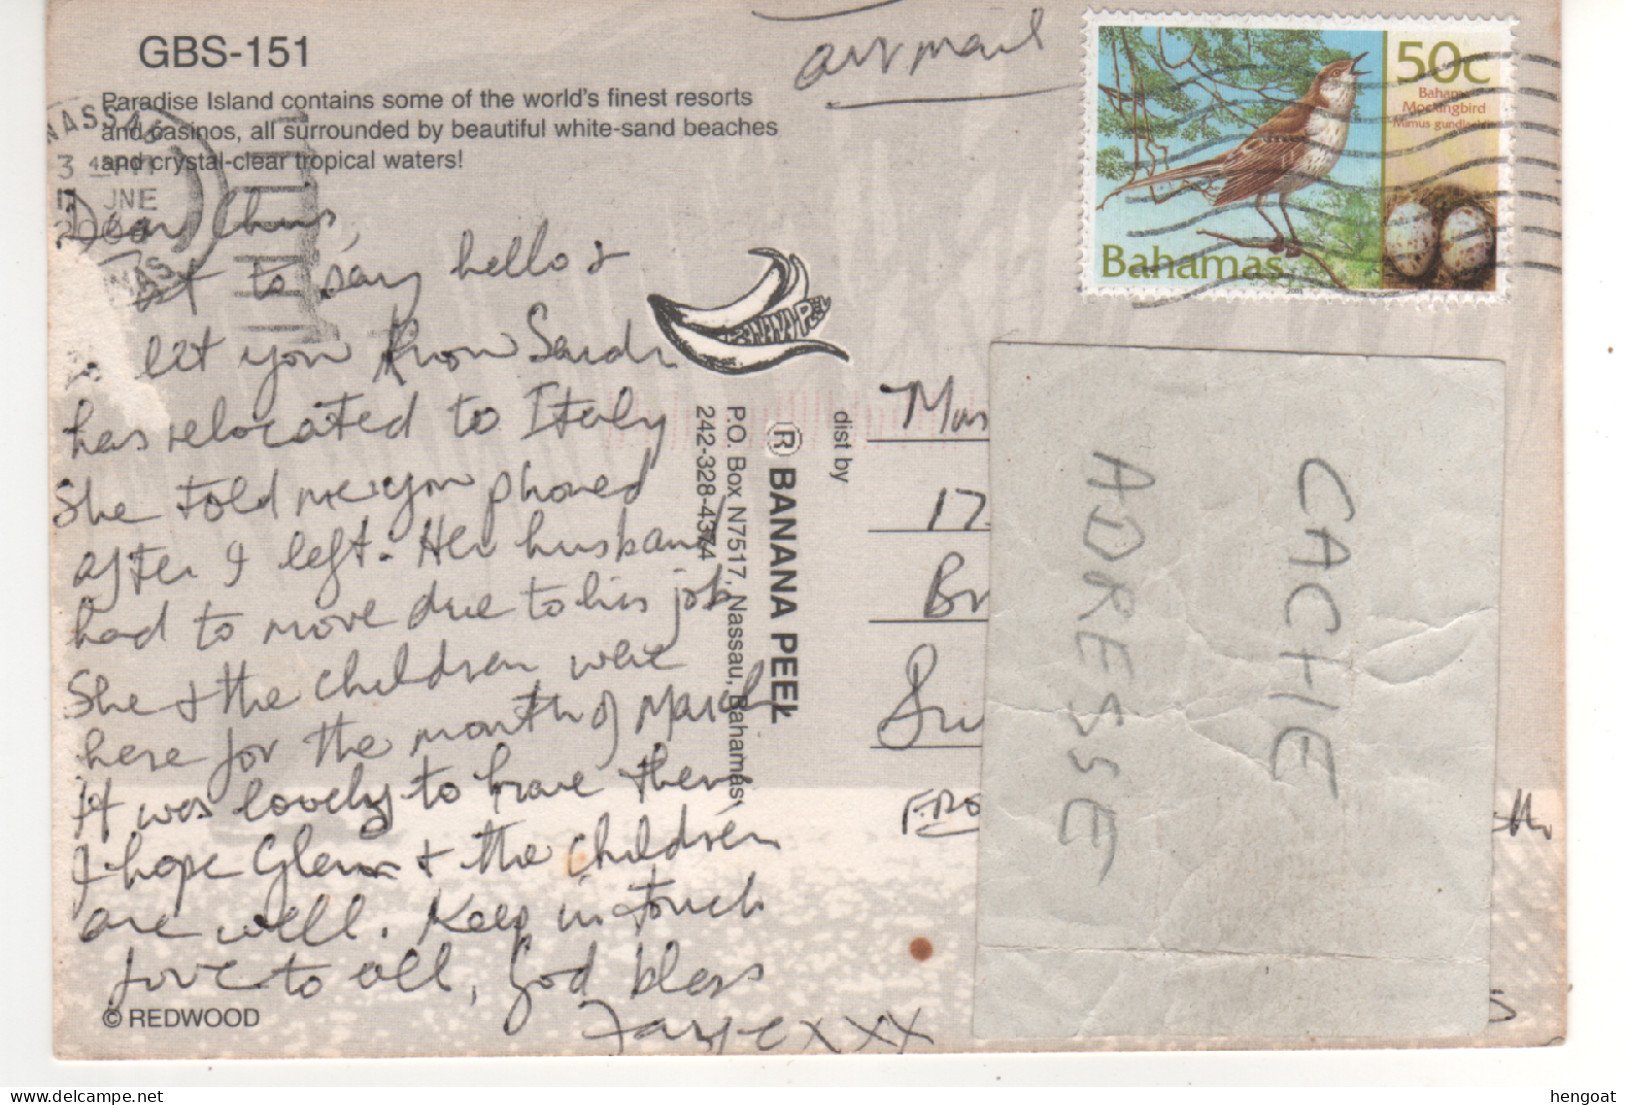 GBS-151
Paradise Island contains some of the world's finest resorts
and casinos, all surrounded by beautiful white-sand beaches
and crystal-clear tropical waters!
air mail
50c
Bahama
Mockingbird
Mimus gundlachii
Bahamas
NASSAU
JNE
Dear Chris,
to say hello &
let you know Sandi
has relocated to Italy
She told me you phoned
after I left. Her husband
had to move due to his job
She & the children were
here for the month of March
It was lovely to have them
I hope Glenn & the children
are well. Keep in touch
Love to all, God bless
Faye xxx
© REDWOOD
BANANA PEEL
dist by
® BANANA PEEL
P.O. Box N7517, Nassau, Bahamas
242-328-4374
17
Br
CACHE
ADRESSE
hengoat
Delcampe.net